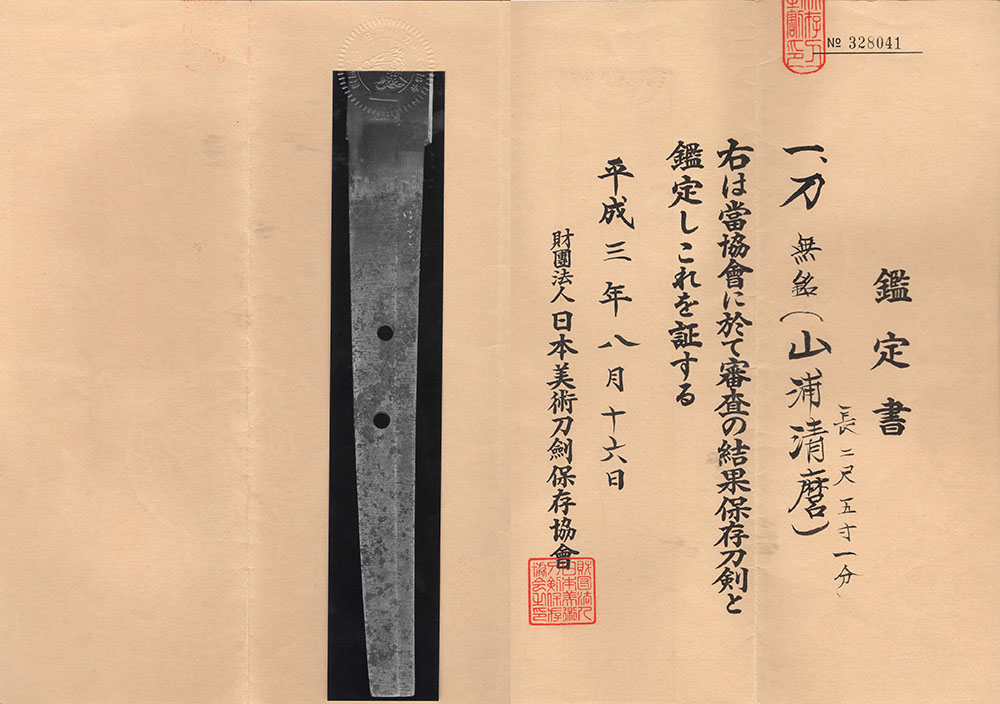 № 328041
鑑定書
長二尺五寸一分
一、刀 無銘(山浦清麿)
右は當協會に於て審査の結果保存刀剣と
鑑定しこれを証する
平成三年八月十六日
財團法人日本美術刀劍保存協會